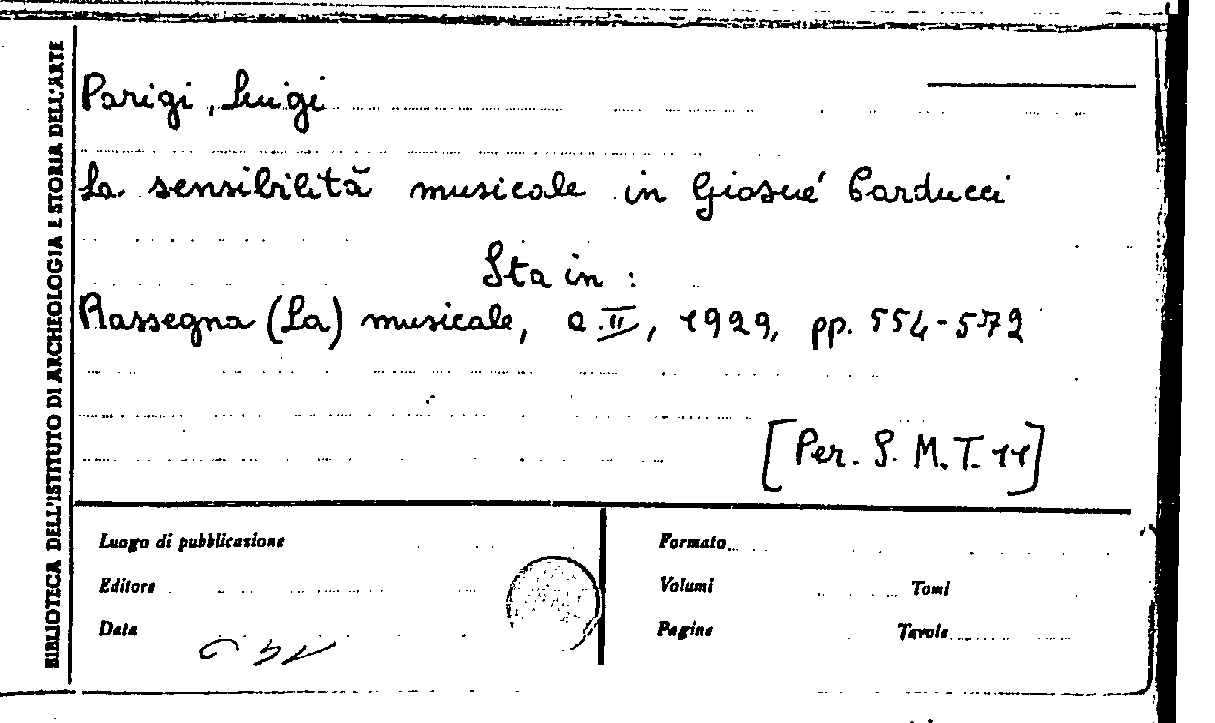 BIBLIOTECA DELL'ISTITUTO DI ARCHEOLOGIA E STORIA DELL'ARTE
Parigi, Luigi
La sensibilità musicale in Giosué Carducci
Sta in:
Rassegna (La) musicale, a. II, 1929, pp. 554-572
[Per. S. M. T. 11]
Luogo di pubblicazione
Editore
Data
Formato
Volumi Tomi
Pagine Tavole